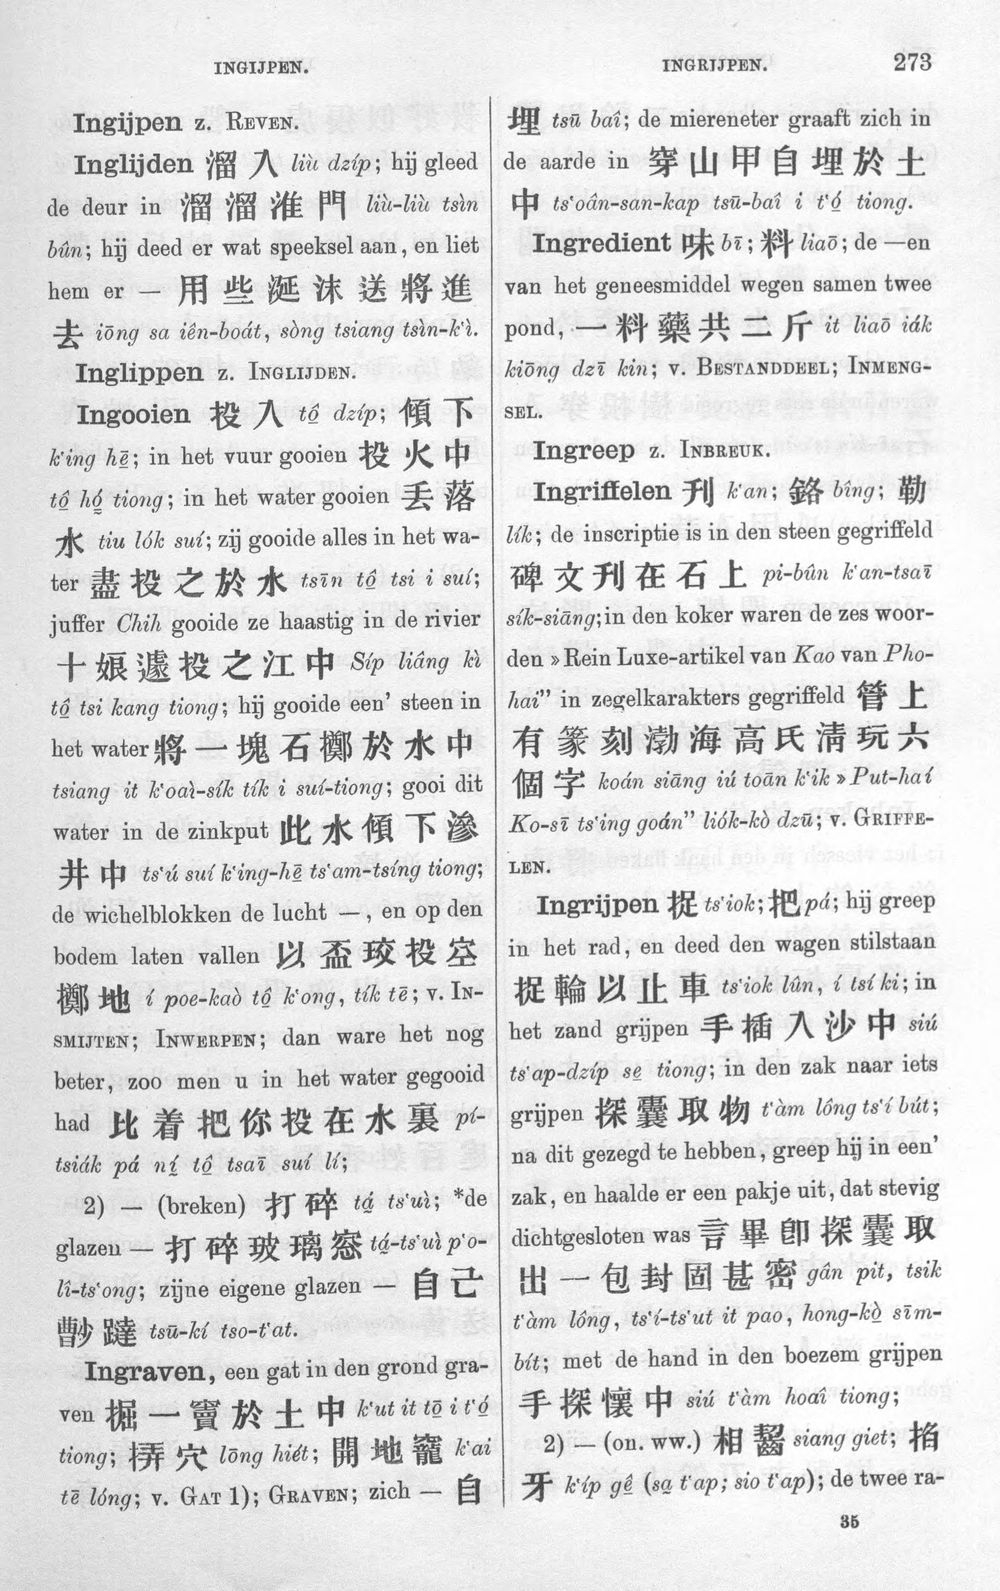 INGIJPEN.
INGRIJPEN.
273
Ingijpen z. REVEN.
Inglijden 溜入 liù dzíp; hij gleed
de deur in 溜溜淮門 liù-liù tsìn
bûn; hij deed er wat speeksel aan, en liet
hem er — 用些涎沫送將進
去 iōng sa iên-boát, sòng tsiang tsìn-k'ì.
Inglippen z. INGLIJDEN.
Ingooien 投入 tô̤ dzíp; 傾下
k'ing hē̤; in het vuur gooien 投火中
tô̤ hó̤ tiong; in het water gooien 丢落
水 tiu lók suí; zij gooide alles in het wa-
ter 盡投之於水 tsīn tô̤ tsi i suí;
juffer Chih gooide ze haastig in de rivier
十娘遽投之江中 Síp liâng kì
tô̤ tsi kang tiong; hij gooide een' steen in
het water 將一塊石擲於水中
tsiang it k'oaì-sík tík i suí-tiong; gooi dit
water in de zinkput 此水傾下滲
井中 ts'ú suí k'ing-hē̤ ts'am-tsíng tiong;
de wichelblokken de lucht —, en op den
bodem laten vallen 以盃珓投空
擲地 í poe-kaò tô̤ k'ong, tík tē; v. IN-
SMIJTEN; INWERPEN; dan ware het nog
beter, zoo men u in het water gegooid
had 比着把你投在水裏 pí-
tsiák pá ní̤ tô̤ tsaī suí lí;
2) — (breken) 打碎 tá̤ ts'uì; *de
glazen — 打碎玻璃窓 tá̤-ts'uì p'o-
lî-ts'ong; zijne eigene glazen — 自己
 tsū-kí tso-t'at.
Ingraven, een gat in den grond gra-
ven 掘一竇於土中 k'ut it tō̤ i t'ó̤
tiong; 挵穴 lōng hiét; 開地窿 k'ai
tē lóng; v. GAT 1); GRAVEN; zich — 自
埋 tsū baî; de miereneter graaft zich in
de aarde in 穿山甲自埋於土
中 ts'oân-san-kap tsū-baî i t'ó̤ tiong.
Ingredient 味 bī; 料 liaō; de —en
van het geneesmiddel wegen samen twee
pond, 一料藥共二斤 it liaō iák
kiōng dzī kin; v. BESTANDDEEL; INMENG-
SEL.
Ingreep z. INBREUK.
Ingriffelen 刋 k'an; 銘 bîng; 勒
lík; de inscriptie is in den steen gegriffeld
碑文刋在石上 pi-bûn k'an-tsaī
sík-siāng; in den koker waren de zes woor-
den »Rein Luxe-artikel van Kao van Pho-
hai" in zegelkarakters gegriffeld 管上
有篆刻渤海高氏清玩六
個字 koán siāng iú toān k'ik »Put-haí
Ko-sī ts'ing goán" liók-kò dzū; v. GRIFFE-
LEN.
Ingrijpen 捉 ts'iok; 把 pá; hij greep
in het rad, en deed den wagen stilstaan
捉輪以止車 ts'iok lûn, í tsí ki; in
het zand grijpen 手插入沙中 siú
ts'ap-dzíp se̤ tiong; in den zak naar iets
grijpen 探囊取物 t'àm lông ts'í bút;
na dit gezegd te hebben, greep hij in een'
zak, en haalde er een pakje uit, dat stevig
dichtgesloten was 言畢卽探囊取
出一包封固甚密 gân pit, tsik
t'àm lông, ts'í-ts'ut it pao, hong-kò̤ sīm-
bít; met de hand in den boezem grijpen
手探懷中 siú t'àm hoaî tiong;
2) — (on. ww.) 相齧 siang giet; 掐
牙 k'íp gê̤ (sa̤ t'ap; sio t'ap); de twee ra-
35